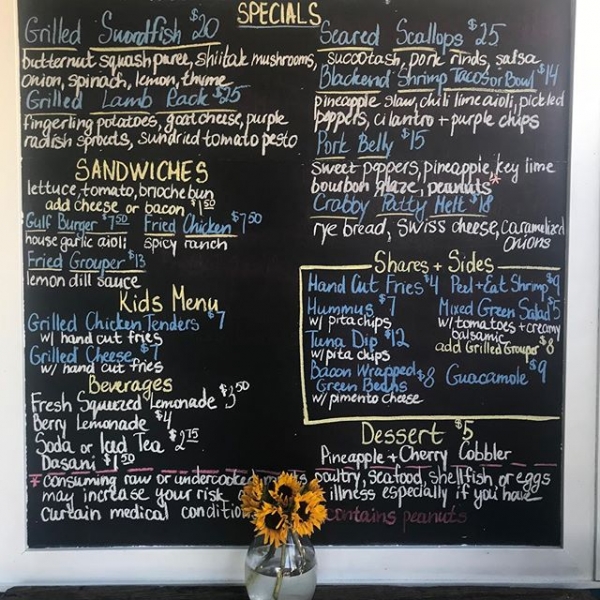 SPECIALS
Grilled Swordfish $20
butternut squash puree, shiitak mushrooms,
onion, spinach, lemon, thyme
Grilled Lamb Rack $25
fingerling potatoes, goat cheese, purple
radish sprouts, sundried tomato pesto
Seared Scallops $25
succotash, pork rinds, salsa
Blackend Shrimp Tacos or Bowl $14
pineapple slaw, chili lime aioli, pickled
peppers, cilantro + purple chips
Pork Belly $15
sweet peppers, pineapple, key lime
bourbon glaze, peanuts*
Crabby Patty Melt $18
rye bread, swiss cheese, caramelized
onions
SANDWICHES
lettuce, tomato, brioche bun
add cheese or bacon $1.50
Gulf Burger $7.50 Fried Chicken $7.50
house garlic aioli spicy ranch
Fried Grouper $13
lemon dill sauce
Kids Menu
Grilled Chicken Tenders $7
w/ hand cut fries
Grilled Cheese $7
w/ hand cut fries
Beverages
Fresh Squeezed Lemonade $3.50
Berry Lemonade $4
Soda or Iced Tea $2.75
Dasani $1.50
Shares + Sides
Hand Cut Fries $4
Hummus $7
w/ pita chips
Tuna Dip $12
w/ pita chips
Bacon Wrapped
Green Beans $8
w/ pimento cheese
Peel + Eat Shrimp $9
Mixed Green Salad $5
w/ tomatoes + creamy
balsamic
add Grilled Grouper $8
Guacamole $9
Dessert $5
Pineapple + Cherry Cobbler
* consuming raw or undercooked meats poultry, seafood, shellfish or eggs
may increase your risk illness especially if you have
curtain medical condition
contains peanuts